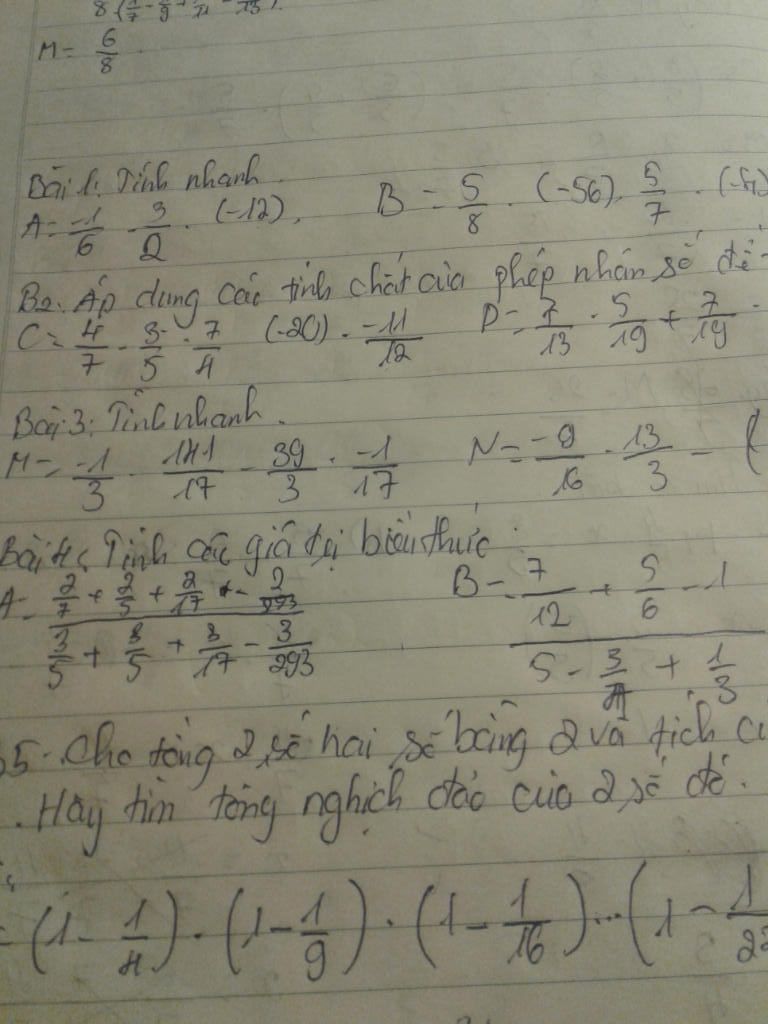 8 (1/7 - 1/9 + 1/11 - 1/13).
M = 6/8
Bài 1: Tính nhanh
A = -1/6 . 3/2 . (-12), B = 5/8 . (-56) . 5/7 .
B2. Áp dung các tính chất của phép nhân số để
C = 4/7 . 3/5 . 7/4 (-20) . -11/12 D = 7/13 . 5/19 + 7/19 .
Bài 3: Tính nhanh.
M = -1/3 . 141/17 - 39/3 . -1/17 N = -9/16 . 13/3 - (
Bài 4: Tính các giá trị biểu thức
A = 2/7 + 2/5 + 2/17 - 2/293 B = 7/12 + 5/6 - 1
3/5 + 3/5 + 3/17 - 3/293 5 - 3/4 + 1/3
5. Cho tổng 2 số hai số bằng 2 và tích
. Hãy tìm tổng nghịch đảo của 2 số đó.
= (1 - 1/4) . (1 - 1/9) . (1 - 1/16) ... (1 - 1/